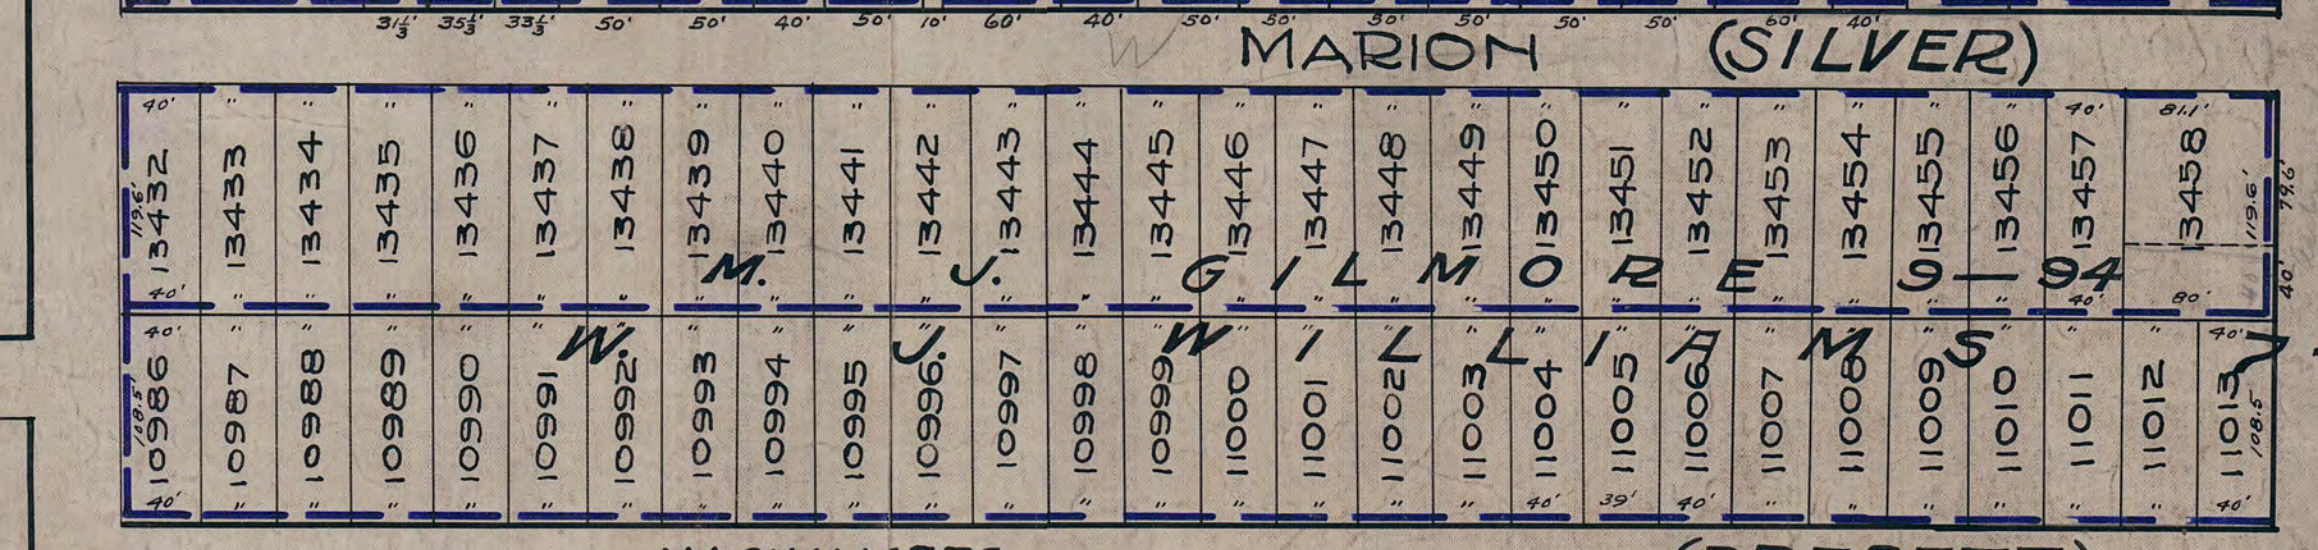 31⅓' 35⅓' 33⅓' 50' 50' 40' 50' 10' 60' 40' 50' 50' 50' 50' 50' 50' 60' 40'
W MARION (SILVER)
40' " " " " " " " " " " " " " " " " " " " " " " " " 40' 81.1'
13432 13433 13434 13435 13436 13437 13438 13439 13440 13441 13442 13443 13444 13445 13446 13447 13448 13449 13450 13451 13452 13453 13454 13455 13456 13457 13458
119.6' 119.6' 79.6'
M. J. GILMORE 9-94
40' " " " " " " " " " " " " " " " " " " " " " " " " 40' 80' 40'
40' " " " " " " " " " " " " " " " " " " " " " " " " " " 40'
W. J. WILLIAMS 7
10986 10987 10988 10989 10990 10991 10992 10993 10994 10995 10996 10997 10998 10999 11000 11001 11002 11003 11004 11005 11006 11007 11008 11009 11010 11011 11012 11013
108.5' 108.5'
40' " " " " " " " " " " " " " " " " " 40' 39' 40' " " " " " " 40'